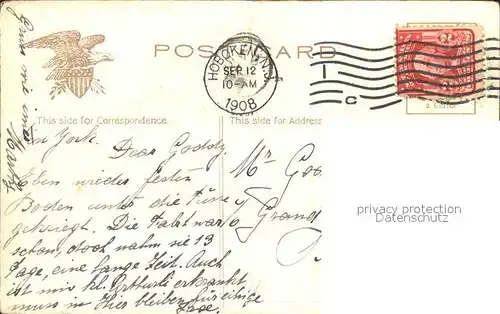 POST CARD
HOBOKEN, N.J.
SEP 12
10-AM
1908
This side for Correspondence.
This side for Address
2 Cents
New York.
Dear Goddy.
Eben wieder festen
Boden unter die Füsse
gekriegt. Die Fahrt war
schon, doch nahm sie 13
Tage, eine lange Zeit. Auch
ist mir kl. Arthurli erkrankt
muss in Hier bleiben für einige
Tage.
Mr Go
Grand
privacy protection
Datenschutz